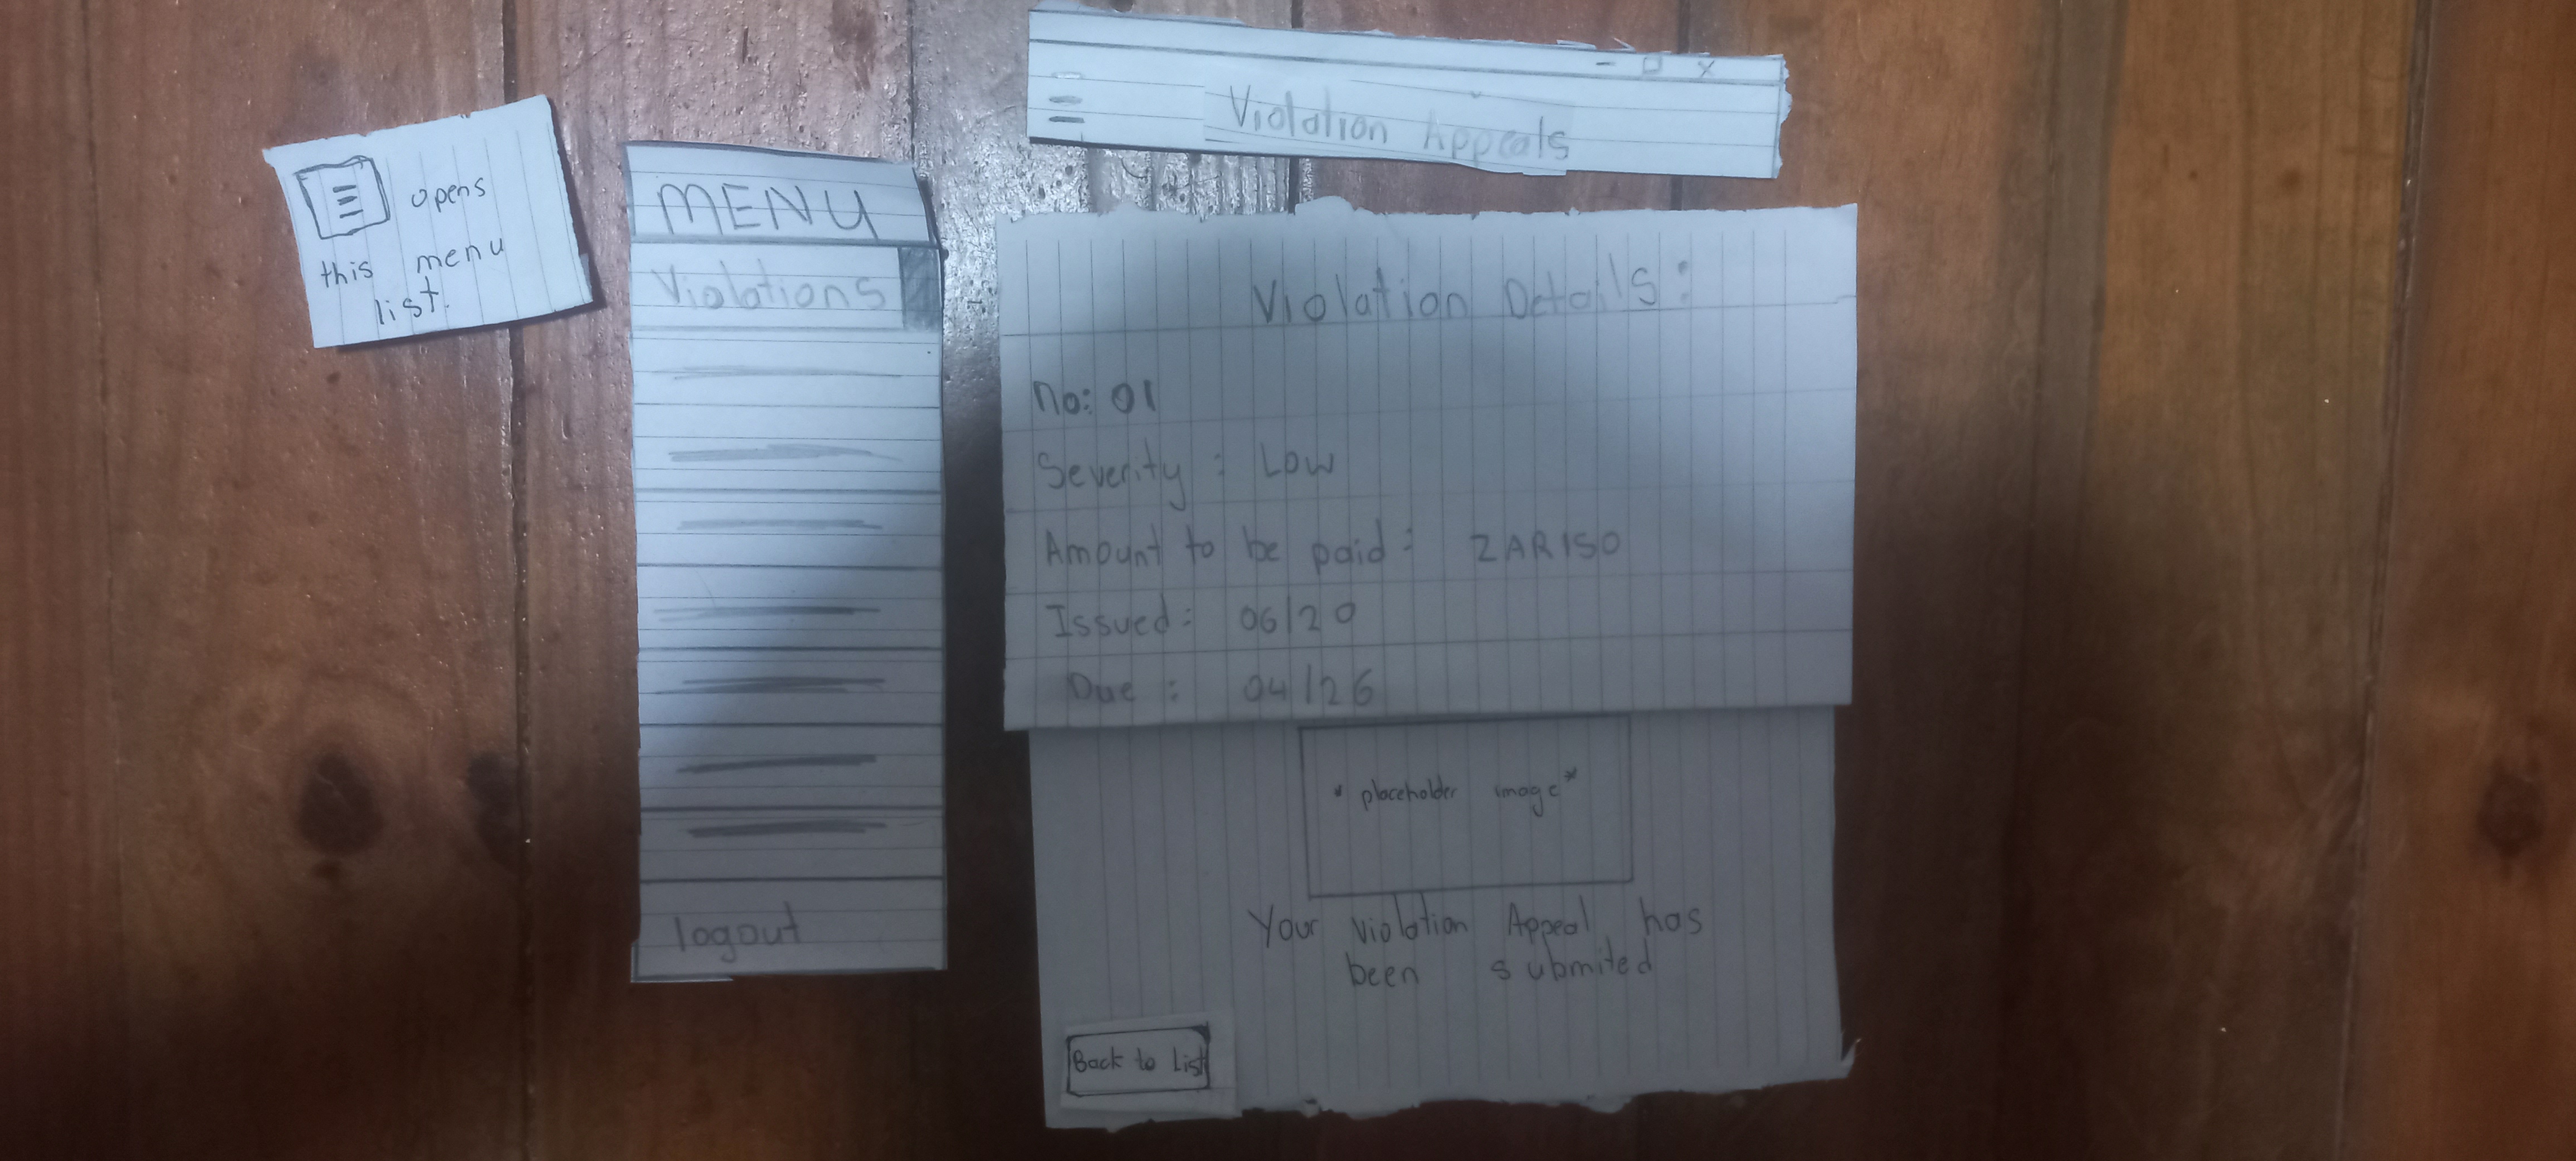 opens
this menu
list.
MENU
Violations
logout
- □ x
Violation Appeals
Violation Details:
No: 01
Severity : Low
Amount to be paid: ZAR150
Issued: 06/20
Due : 04/26
* placeholder image*
Your violation Appeal has
been submited
Back to List